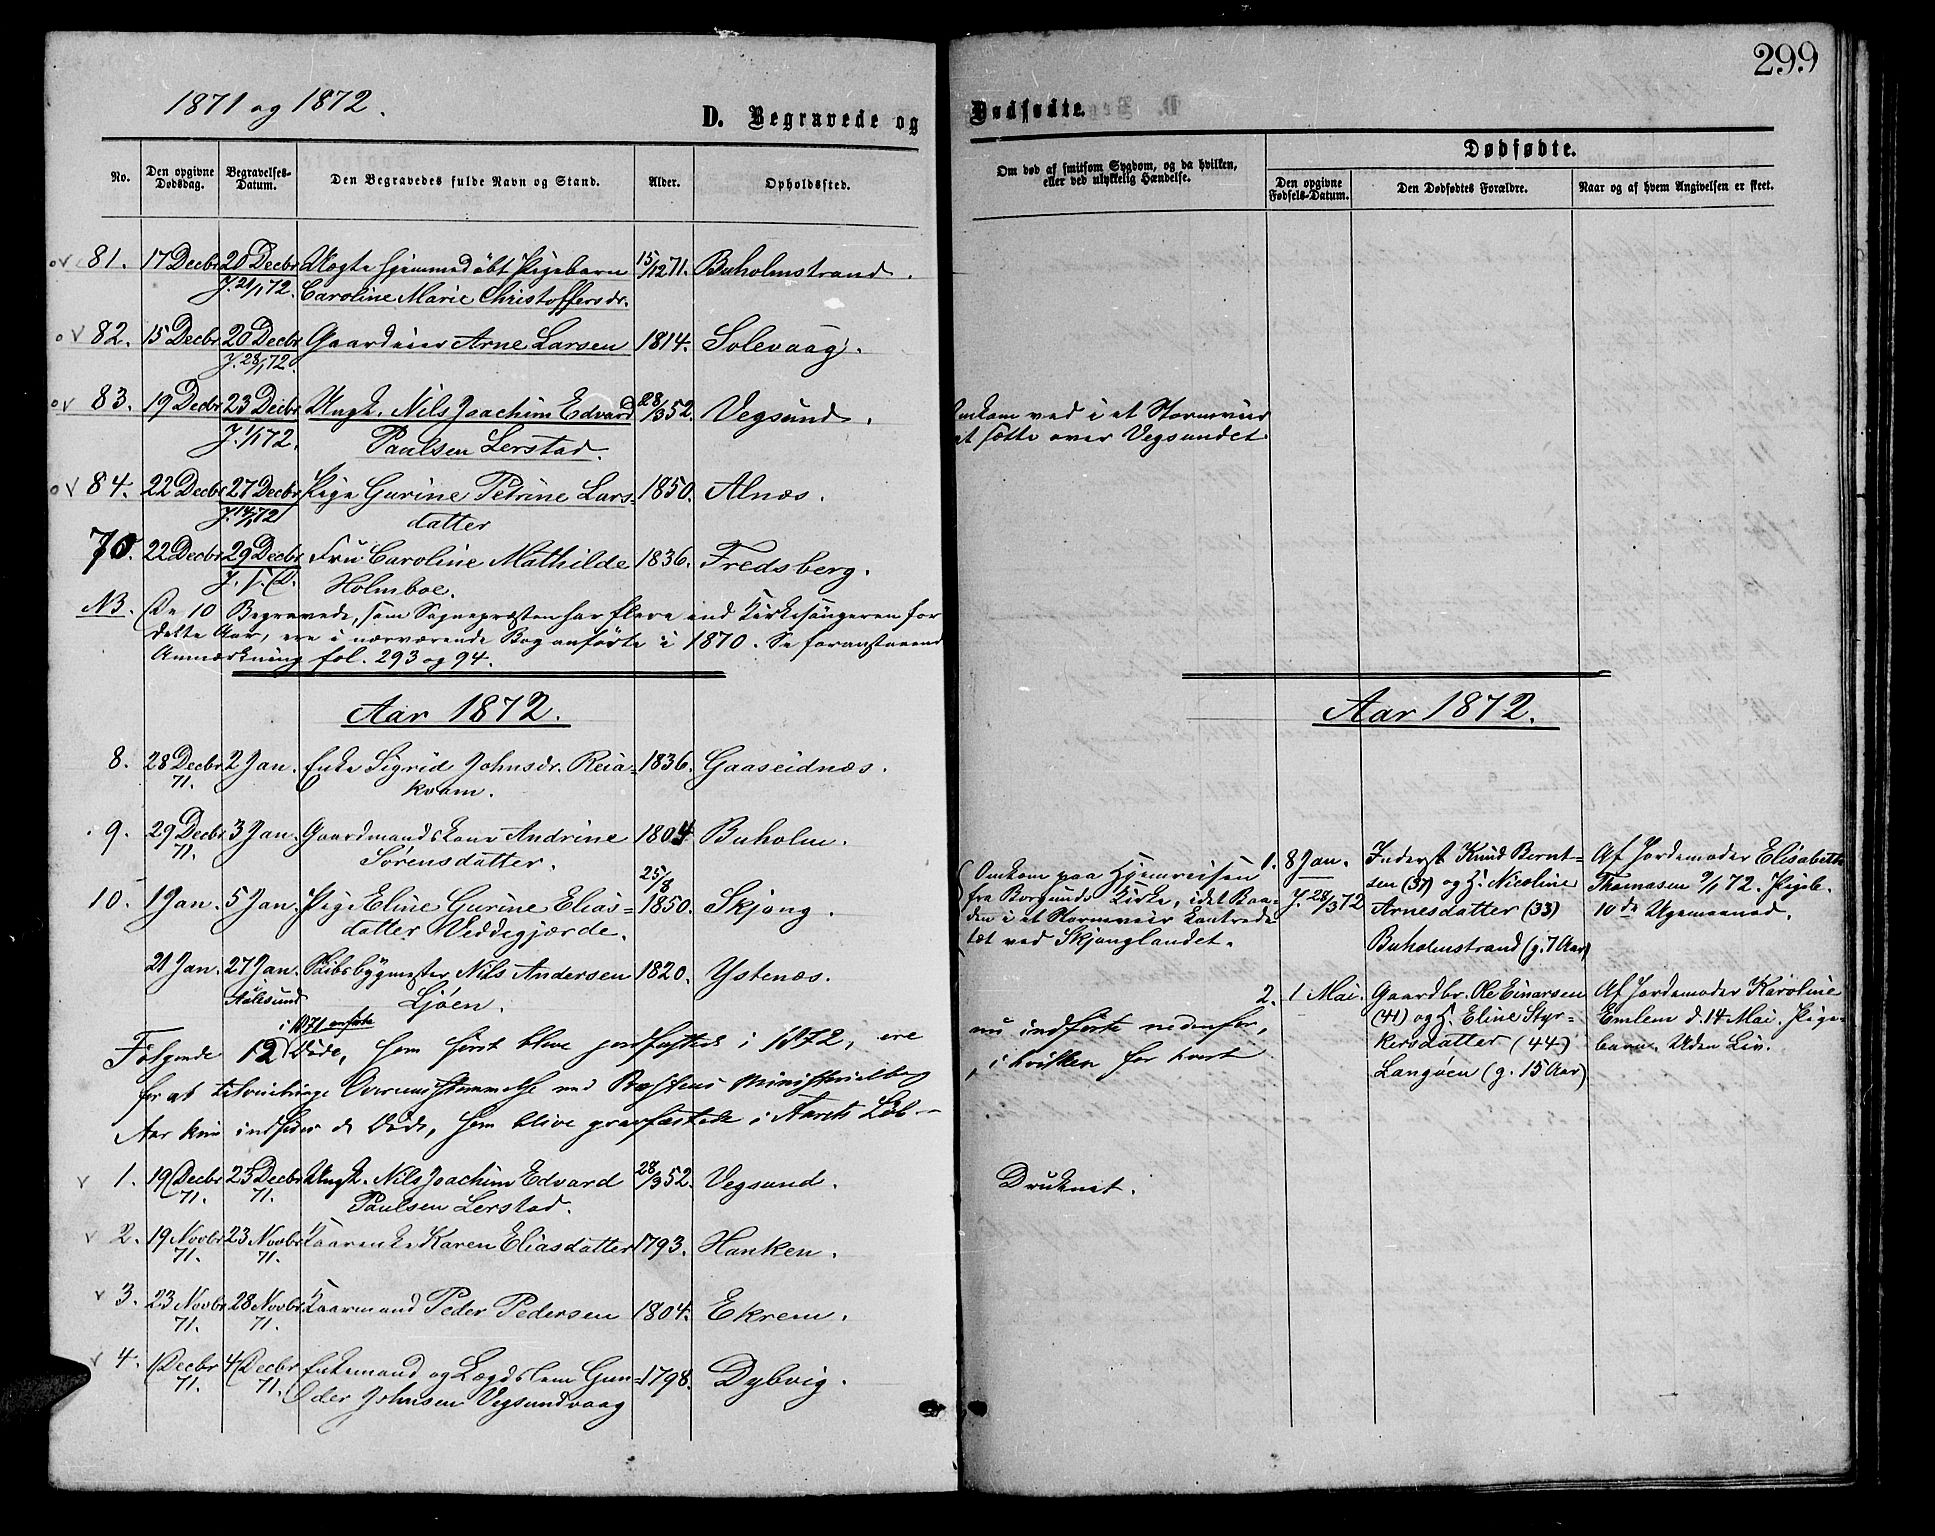 299
1871 og 1872.
D. Begravede og Dødfødte.
No. Den opgivne Dødsdag. Begravelses-Datum. Den Begravedes fulde Navn og Stand. Alder. Opholdssted.
Om død af smitsom Sygdom, og da hvilken, eller ved ulykkelig Hændelse.
Dødfødte.
Den opgivne Fødsels-Datum. Den Dødfødtes Forældre. Naar og af hvem Angivelsen er skeet.
81. 17 Decbr 20 Decbr Uægte hjemmedøbt Pigebarn 15/12 71. Buholmstrand.
J. 21/1 72. Caroline Marie Christoffersdr.
82. 15 Decbr 20 Decbr Gaardeier Arne Larsen 1814. Solevaag.
J. 28/1 72.
83. 19 Decbr 23 Decbr Ungk. Nils Joachim Edvard 28/3 52. Vegsund.
J. 1/1 72. Paulsen Lerstad.
Omkom ved i et Stormveir
at sætte over Vegsundet.
84. 22 Decbr 27 Decbr Pige Gurine Petrine Lars-
J. 14/1 72 datter 1850. Alnæs.
70. 22 Decbr 29 Decbr Fru Caroline Mathilde 1836. Fredsberg.
J. s. D. Holmboe.
NB. De 10 Begravede, som Sognepræsten har flere end Kirkesangeren for
dette Aar, ere i nærværende Bog anførte i 1870. Se foranstaaende
Anmærkning fol. 293 og 94.
Aar 1872.
Aar 1872.
8. 28 Decbr 71. 2 Jan. Enke Sigrid Johnsdr. Reia- 1836. Gaaseidnæs.
kvam.
9. 29 Decbr 71. 3 Jan. Gaardmandskone Andrine 1804. Buholm.
Sørensdatter.
10. 1 Jan. 5 Jan. Pige Eline Gurine Elias- 25/8 1850. Skjong.
datter Veddegjærde.
Omkom paa Hjemreisen
fra Borgunds Kirke, idet Baa-
den i et Stormveir kantrede
tæt ved Skjonglandet.
21 Jan. 27 Jan. Skibsbygmester Nils Andersen 1820. Ystenæs.
Aalesund Ljøen.
1. 8 Jan. Inderst Knud Bernt- Af Jordemoder Elisabeth
J. 28/3 72 sen (37) og H. Nicoline Thomasen 9/1 72. Pigeb.
Arnesdatter (33) 10de Ugemaaned.
Buholmstrand (g. 7 Aar)
2. 1 Mai. Gaardbr. Ole Einarsen Af Jordemoder Karoline
(41) og H. Eline Styr- Emlem d. 14 Mai. Pige-
kersdatter (44) barn. Uden Liv.
Langøen (g. 15 Aar)
i 1871 anførte
Følgende 12 Døde, som først bleve jordfæstede i 1872, ere nu indførte nedenfor,
for at tilveiebringe Overensstemmelse med Præstens Ministerialbog, i hvilken for hvert
Aar kun indføres de Døde, som blive gravfæstede i Aarets Løb.
1. 19 Decbr 71. 23 Decbr 71. Ungk. Nils Joachim Edvard 28/3 52. Vegsund. Druknet.
Paulsen Lerstad.
2. 19 Novbr 71. 23 Novbr 71. Kaarenke Karen Eliasdatter 1793. Hanken.
3. 23 Novbr 71. 28 Novbr 71. Kaarmand Peder Pedersen 1804. Ekrem.
4. 1 Decbr 71. 4 Decbr 71. Enkemand og Lægdslem Gun- 1798. Dybvig.
der Johnsen Vegsundvaag